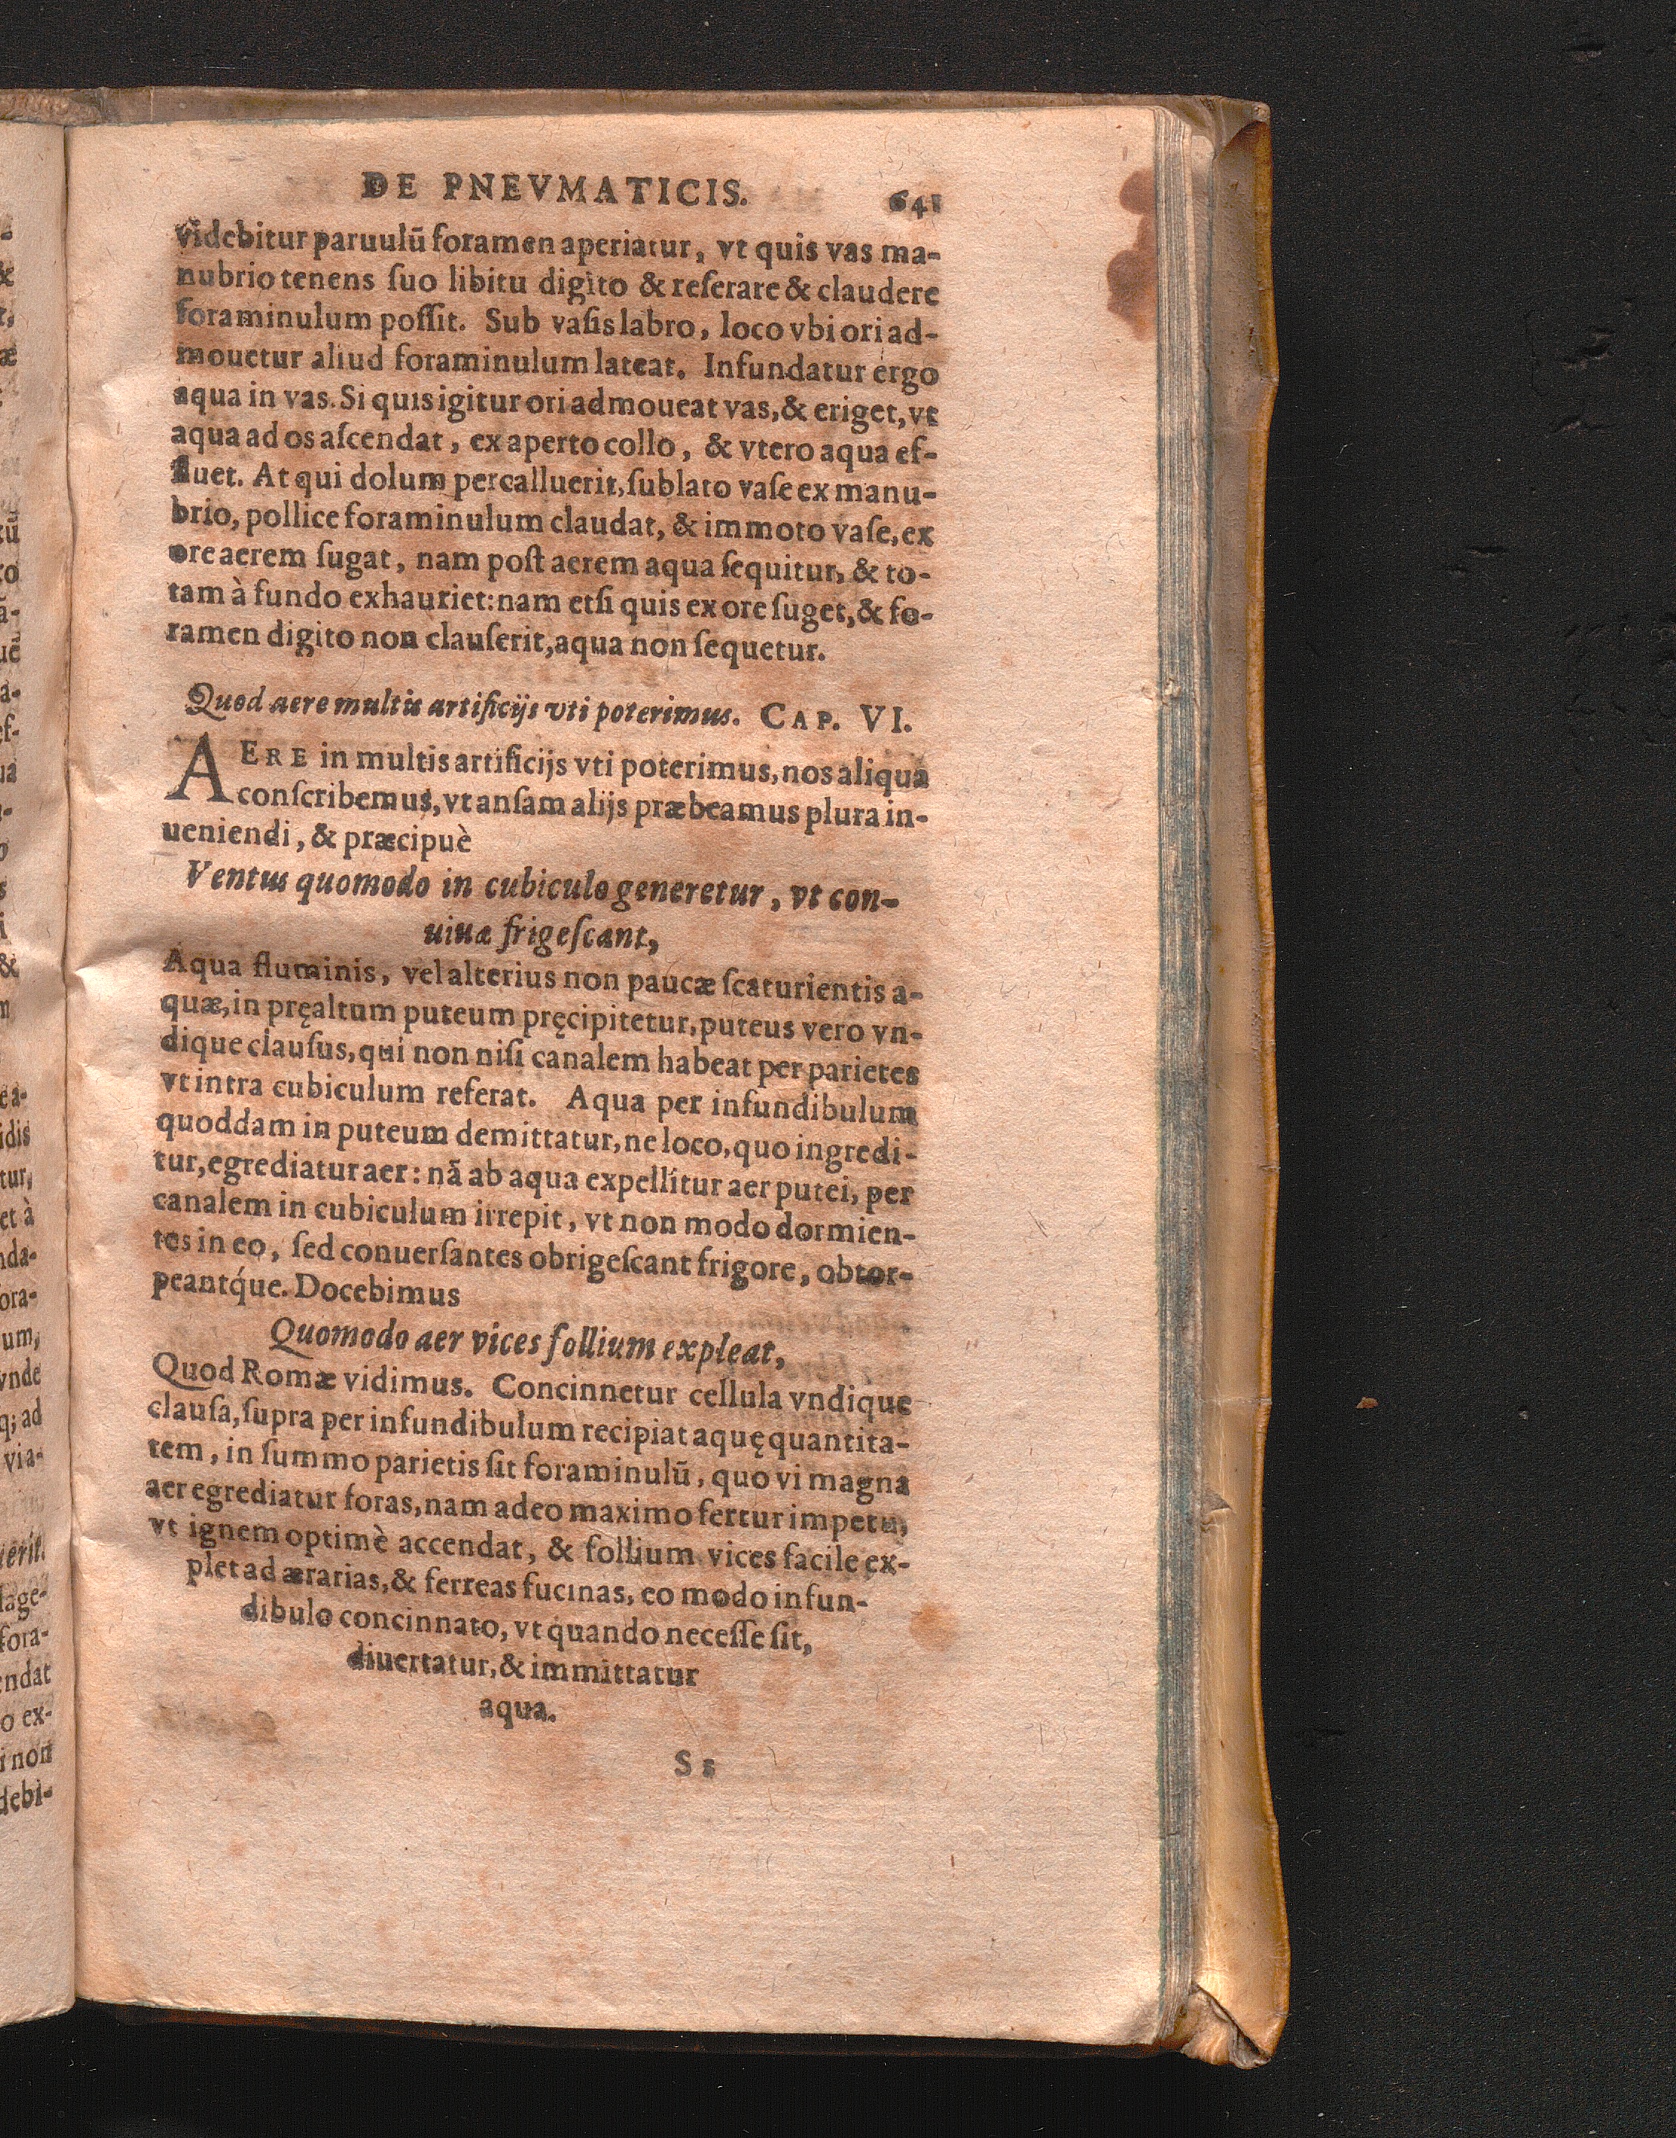 DE PNEVMATICIS. 641
videbitur paruulũ foramen aperiatur, vt quis vas ma-
nubrio tenens ſuo libitu digito & reſerare & claudere
foraminulum poſſit. Sub vaſis labro, loco vbi ori ad-
mouetur aliud foraminulum lateat. Infundatur ergo
aqua in vas. Si quis igitur ori admoueat vas, & eriget, vt
aqua ad os aſcendat, ex aperto collo, & vtero aqua ef-
fluet. At qui dolum percalluerit, ſublato vaſe ex manu-
brio, pollice foraminulum claudat, & immoto vaſe, ex
ore aerem ſugat, nam poſt aerem aqua ſequitur, & to-
tam à fundo exhauriet: nam etſi quis ex ore ſuget, & fo-
ramen digito non clauſerit, aqua non ſequetur.
Quod aere multis artificijs vti poterimus. CAP. VI.
AERE in multis artificijs vti poterimus, nos aliqua
conſcribemus, vt anſam alijs præbeamus plura in-
ueniendi, & præcipuè
Ventus quomodo in cubiculo generetur, vt con-
uiuæ frigeſcant,
Aqua fluminis, vel alterius non paucæ ſcaturientis a-
quæ, in pręaltum puteum pręcipitetur, puteus vero vn-
dique clauſus, qui non niſi canalem habeat per parietes
vt intra cubiculum referat. Aqua per infundibulum
quoddam in puteum demittatur, ne loco, quo ingredi-
tur, egrediatur aer: nã ab aqua expellitur aer putei, per
canalem in cubiculum irrepit, vt non modo dormien-
tes in eo, ſed conuerſantes obrigeſcant frigore, obtor-
peantq́ue. Docebimus
Quomodo aer vices follium expleat,
Quod Romæ vidimus. Concinnetur cellula vndique
clauſa, ſupra per infundibulum recipiat aquę quantita-
tem, in ſummo parietis ſit foraminulũ, quo vi magna
aer egrediatur foras, nam adeo maximo fertur impetu,
vt ignem optimè accendat, & follium vices facile ex-
plet ad ærarias, & ferreas fucinas, eo modo infun-
dibulo concinnato, vt quando neceſſe ſit,
diuertatur, & immittatur
aqua.
S s